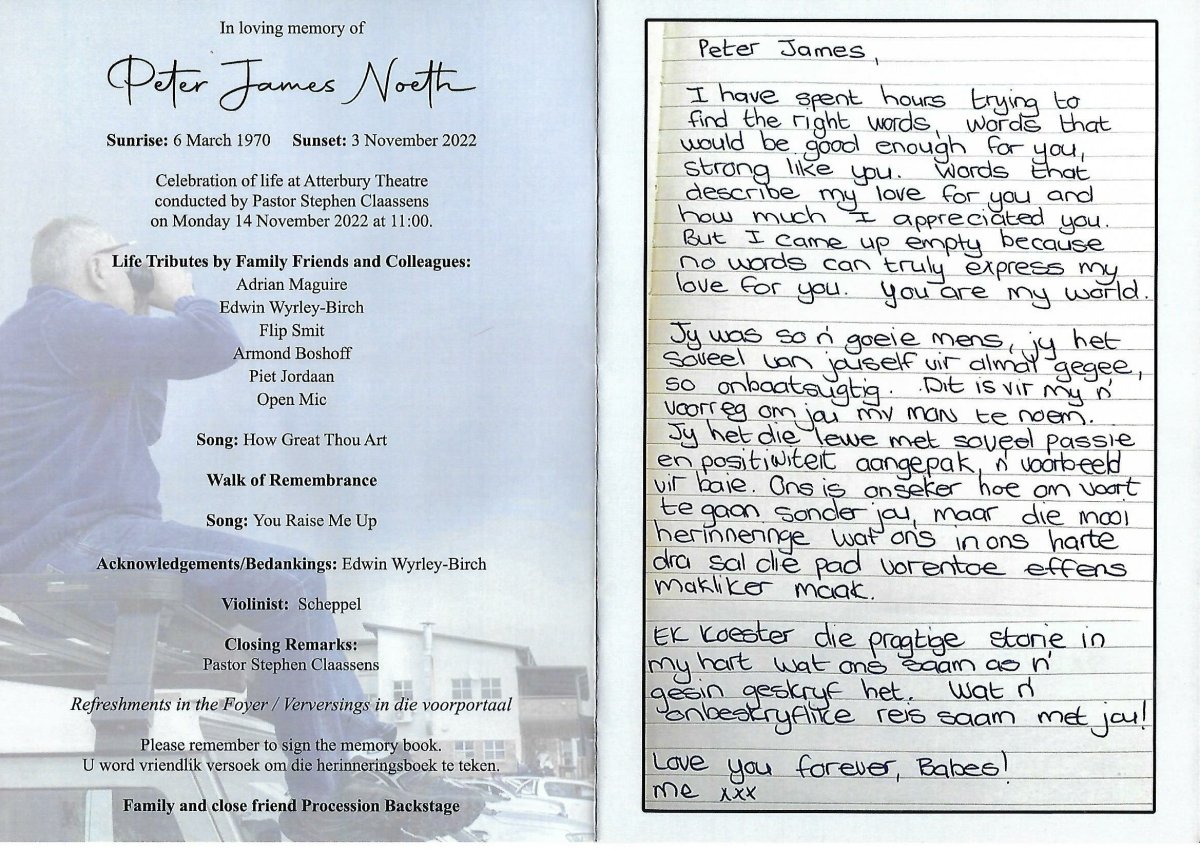 In loving memory of
Peter James Noeth
Sunrise: 6 March 1970 Sunset: 3 November 2022
Celebration of life at Atterbury Theatre
conducted by Pastor Stephen Claassens
on Monday 14 November 2022 at 11:00.
Life Tributes by Family Friends and Colleagues:
Adrian Maguire
Edwin Wyrley-Birch
Flip Smit
Armond Boshoff
Piet Jordaan
Open Mic
Song: How Great Thou Art
Walk of Remembrance
Song: You Raise Me Up
Acknowledgements/Bedankings: Edwin Wyrley-Birch
Violinist: Scheppel
Closing Remarks:
Pastor Stephen Claassens
Refreshments in the Foyer / Verversings in die voorportaal
Please remember to sign the memory book.
U word vriendlik versoek om die herinneringsboek te teken.
Family and close friend Procession Backstage
Peter James,
I have spent hours trying to
find the right words, words that
would be good enough for you,
strong like you. Words that
describe my love for you and
how much I appreciated you.
But I came up empty because
no words can truly express my
love for you. You are my world.
Jy was so n' goeie mens, jy het
soveel van jouself vir almal gegee,
so onbaatsugtig. Dit is vir my n'
voorreg om jou my man te noem.
Jy het die lewe met soveel passie
en positiwiteit aangepak, n' voorbeeld
vir baie. Ons is onseker hoe om voort
te gaan sonder jou, maar die mooi
herinneringe wat ons in ons harte
dra sal die pad vorentoe effens
makliker maak.
Ek koester die pragtige storie in
my hart wat ons saam as n'
gesin geskryf het. Wat n'
onbeskryflike reis saam met jou!
Love you forever, Babes!
me xxx